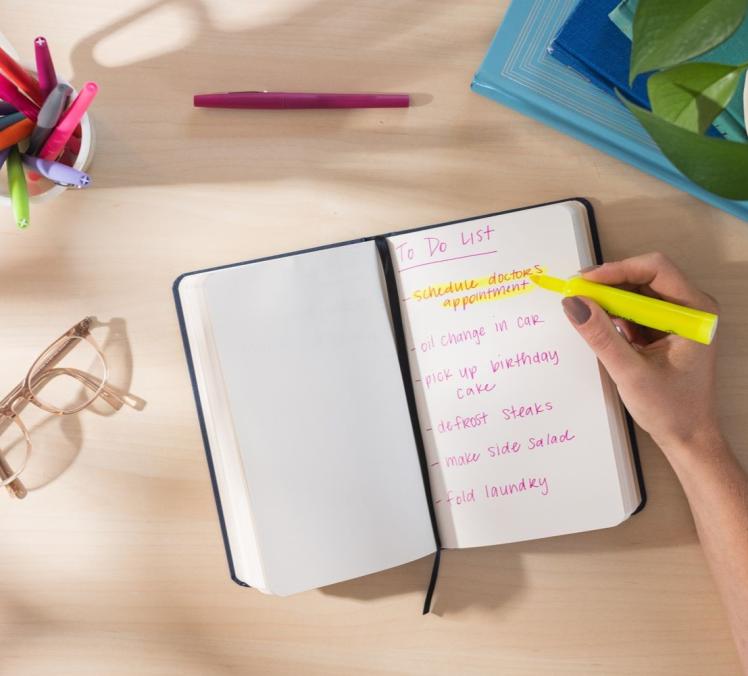 To Do List
- schedule doctors
appointment
- oil change in car
- pick up birthday
cake
- defrost steaks
- make side salad
- fold laundry